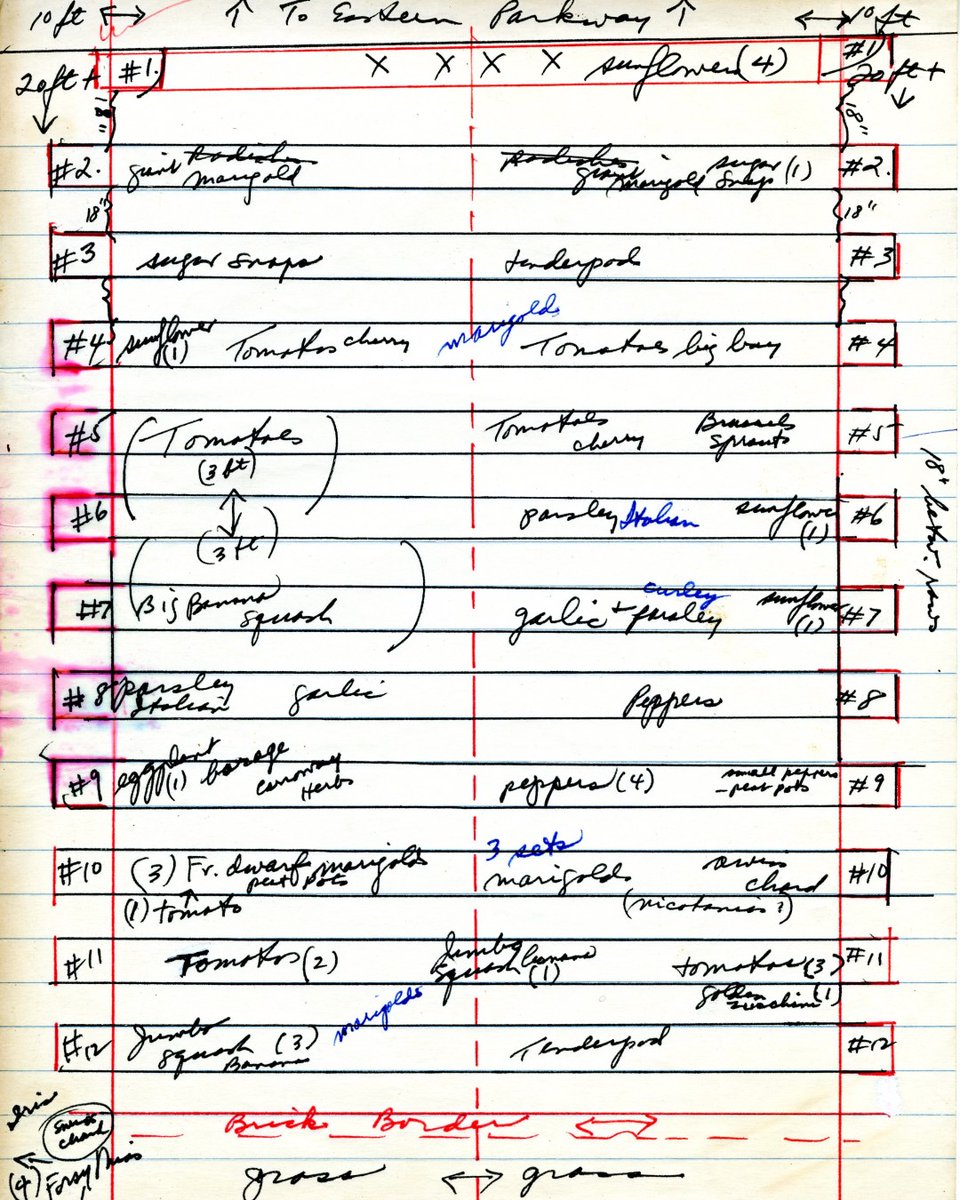 10 ft ↔ ↑ To Eastern Parkway ↑ ↔ 10 ft
20 ft + #1. X X X X sunflower (4) #1 20 ft +
18" 18"
#2. giant Radishes marigold Radishes giant marigold sugar snaps (1) #2.
18" 18"
#3 sugar snaps tenderpod #3
#4 sunflower (1) Tomatoes cherry marigolds Tomatoes big boy #4
#5 Tomatoes (3 ft) Tomatoes cherry Brussels Sprouts #5
18" betw. rows
#6 (3 ft) parsley Italian sunflower (1) #6
#7 Big Banana squash garlic + curley parsley sunflower (1) #7
#8 parsley Italian garlic Peppers #8
#9 eggplant (1) borage Carroway Herbs peppers (4) small peppers - peat pots #9
#10 (3) Fr. dwarf marigolds peat pots 3 sets marigolds swiss chard #10
(1) tomato (nicotanias?)
#11 Tomatos (2) Jumbo squash banana (1) tomatoes (3) #11
golden zucchini (1)
#12 Jumbo squash (3) Banana marigolds Tenderpod #12
Iris
swiss chard
Brick Border
(4)
grass ↔ grass